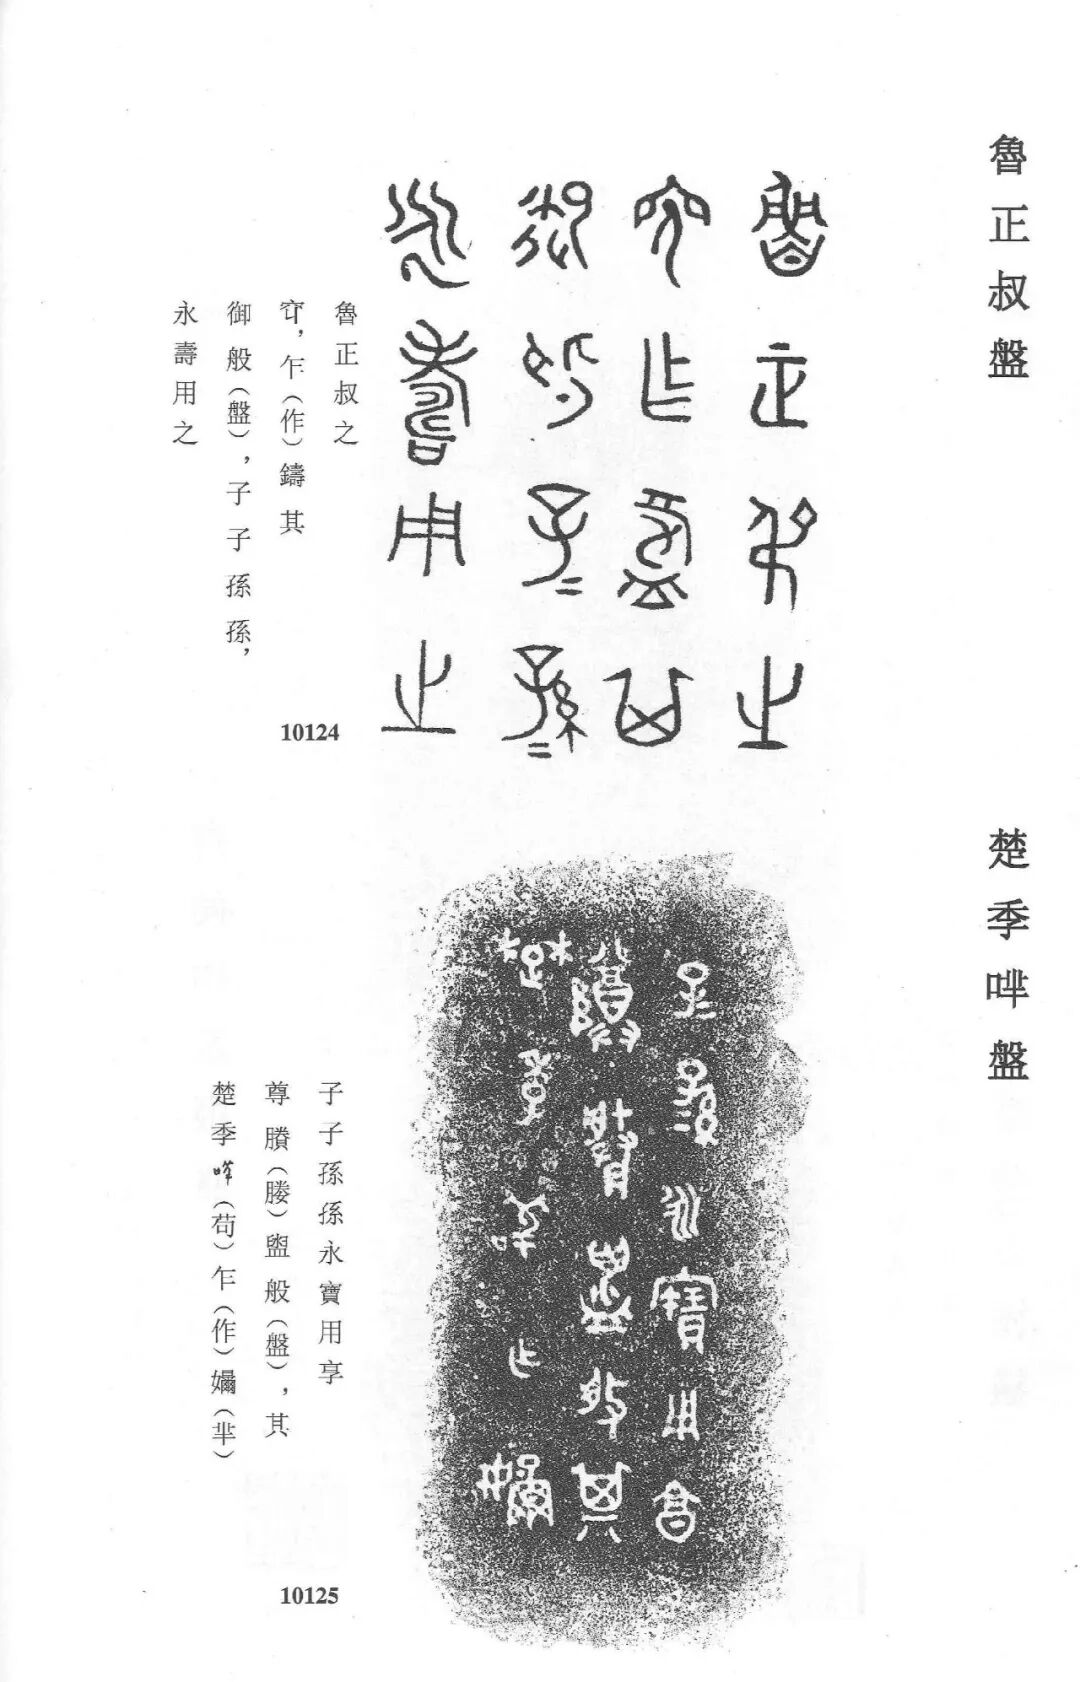 魯正叔盤
魯正叔之
，乍（作）鑄其
御般（盤），子子孫孫，
永壽用之
10124
楚季哶盤
楚季（苟）乍（作）嬭（羋）
尊賸（媵）盥般（盤），其
子子孫孫永寶用享
10125